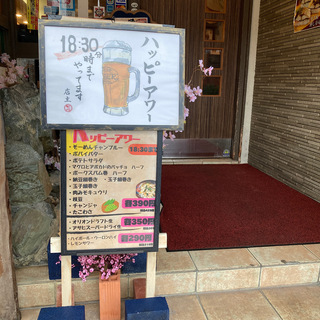 ハッピーアワー
18:30分
時まで
やってます
店主
ハッピーアワー
・そーめんチャンプルー
・ポパイバター
・ポテトサラダ
・マグロとアボカドのバッチョ ハーフ
・ポークスパム巻 ハーフ
・納豆細巻き ・玉子細巻き
・肉みそキュウリ
・枝豆
・チャンジャ
・たこわさ
各390円
・オリオンドラフト生
・アサヒスーパードライ生
各350円
・ハイボール・ウーロンハイ
・レモンサワー
各290円